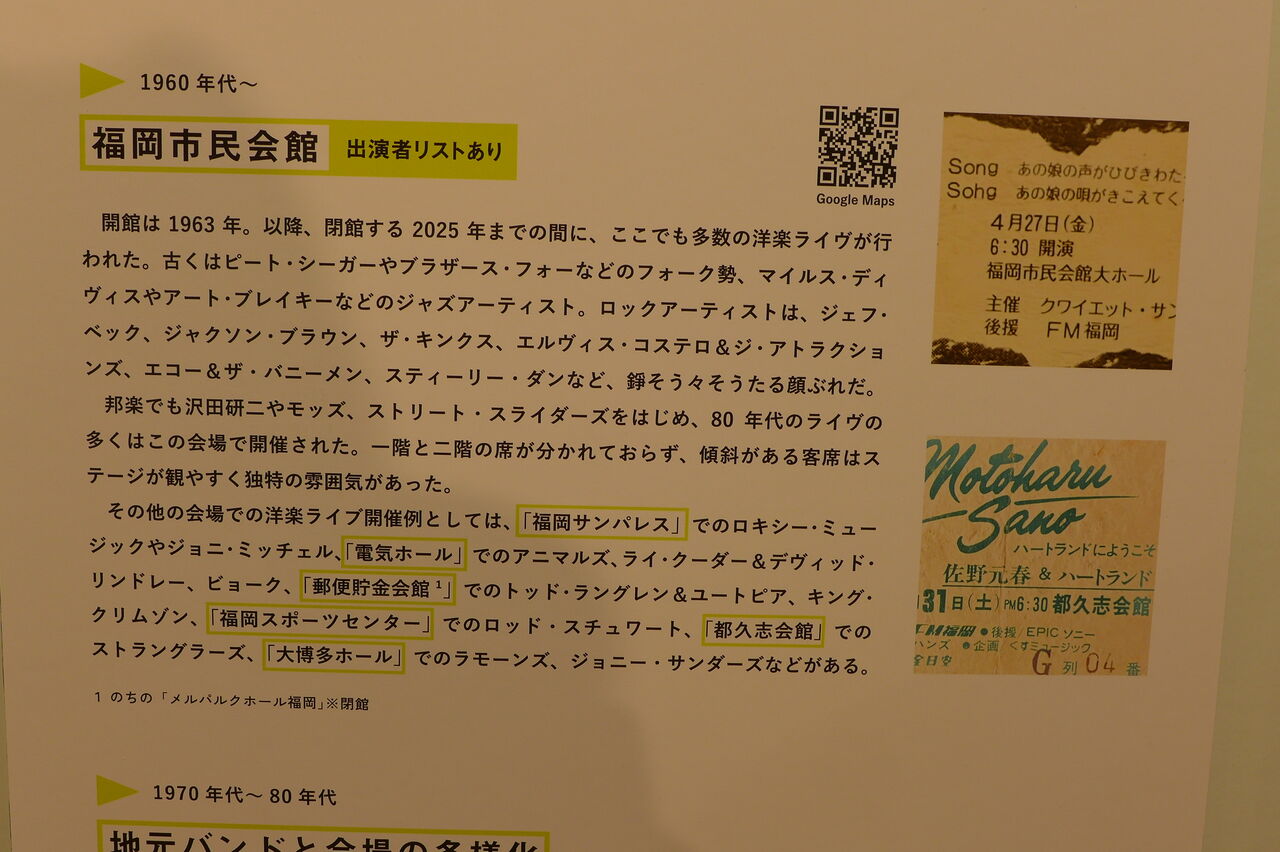 1960 年代〜
福岡市民会館 出演者リストあり
Google Maps
開館は 1963 年。以降、閉館する 2025 年までの間に、ここでも多数の洋楽ライヴが行
われた。古くはピート・シーガーやブラザース・フォーなどのフォーク勢、マイルス・ディ
ヴィスやアート・ブレイキーなどのジャズアーティスト。ロックアーティストは、ジェフ・
ベック、ジャクソン・ブラウン、ザ・キンクス、エルヴィス・コステロ＆ジ・アトラクショ
ンズ、エコー＆ザ・バニーメン、スティーリー・ダンなど、錚そう々そうたる顔ぶれだ。
邦楽でも沢田研二やモッズ、ストリート・スライダーズをはじめ、80 年代のライヴの
多くはこの会場で開催された。一階と二階の席が分かれておらず、傾斜がある客席はス
テージが観やすく独特の雰囲気があった。
その他の会場での洋楽ライブ開催例としては、「福岡サンパレス」でのロキシー・ミュー
ジックやジョニ・ミッチェル、「電気ホール」でのアニマルズ、ライ・クーダー＆デヴィッド・
リンドレー、ビョーク、「郵便貯金会館¹」でのトッド・ラングレン＆ユートピア、キング・
クリムゾン、「福岡スポーツセンター」でのロッド・スチュワート、「都久志会館」での
ストラングラーズ、「大博多ホール」でのラモーンズ、ジョニー・サンダーズなどがある。
1 のちの「メルパルクホール福岡」※閉館
1970 年代〜 80 年代
地元バンドと会場の多様化
Song あの娘の声がひびきわた
Sohg あの娘の唄がきこえてく
4月27日(金)
6:30 開演
福岡市民会館大ホール
主催 クワイエット・サン
後援 FM福岡
Motoharu
Sano
ハートランドにようこそ
佐野元春 & ハートランド
31日(土) PM6:30 都久志会館
FM福岡 ●後援/EPIC ソニー
ハンズ ●企画/くすミュージック
G 列 04 番